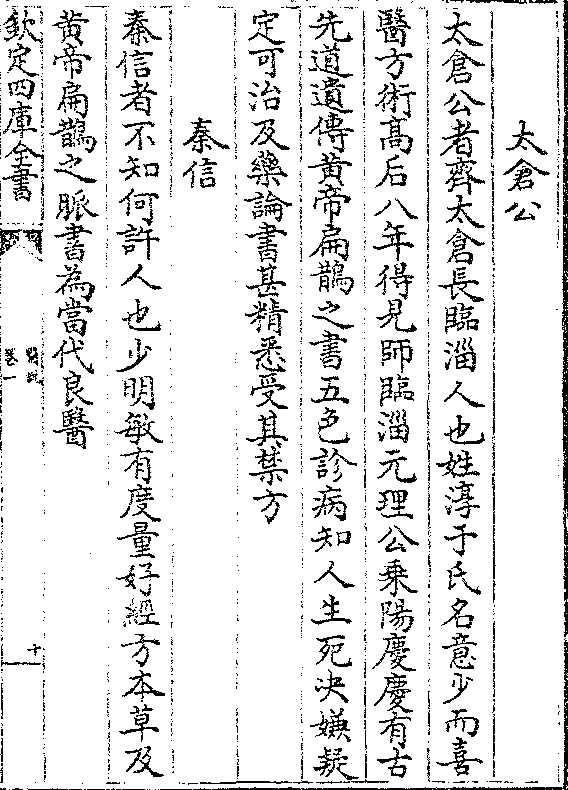 太倉公
太倉公者齊太倉長臨淄人也姓淳于氏名意少而喜
醫方術髙后八年得見師臨淄元理公乗陽慶慶有古
先道遺傳黄帝扁鵲之書五色診病知人生死决嫌疑
定可治及藥論書甚精悉受其禁方
秦信
秦信者不知何許人也少明敏有度量好經方本草及
黄帝扁鵲之脈書為當代良醫
欽定四庫全書
醫說
卷一
十